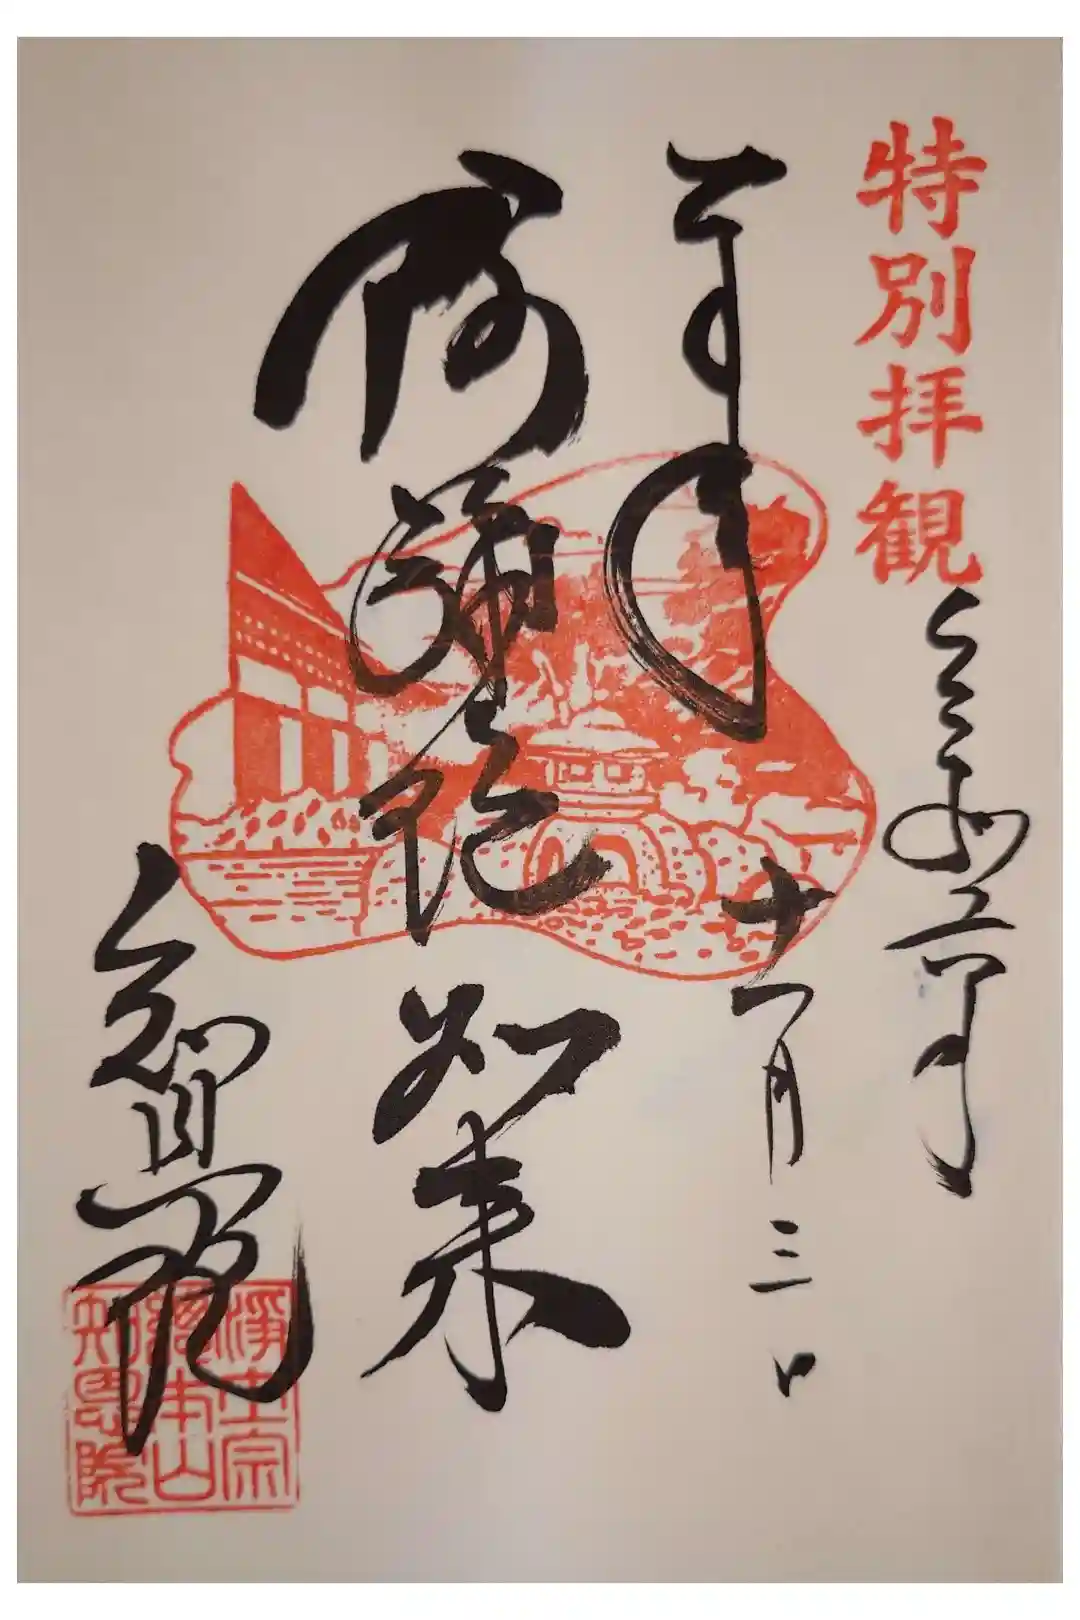 特別拝観
令和五年
十一月三日
阿弥陀如来
知恩院
淨土宗
總本山
知恩院